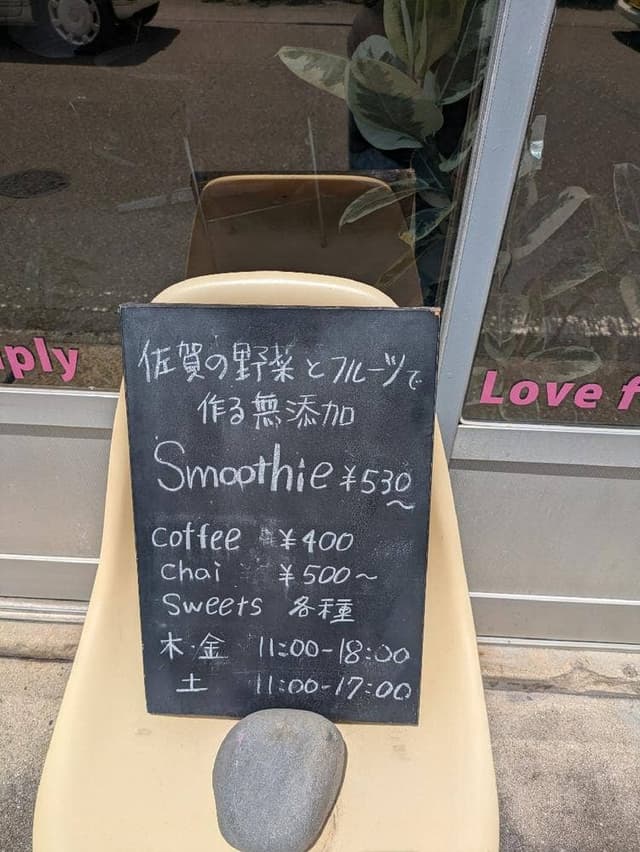 佐賀の野菜とフルーツで
作る無添加
Smoothie ¥530~
coffee ¥400
chai ¥500~
Sweets 各種
木・金 11:00-18:00
土 11:00-17:00
ply
Love f